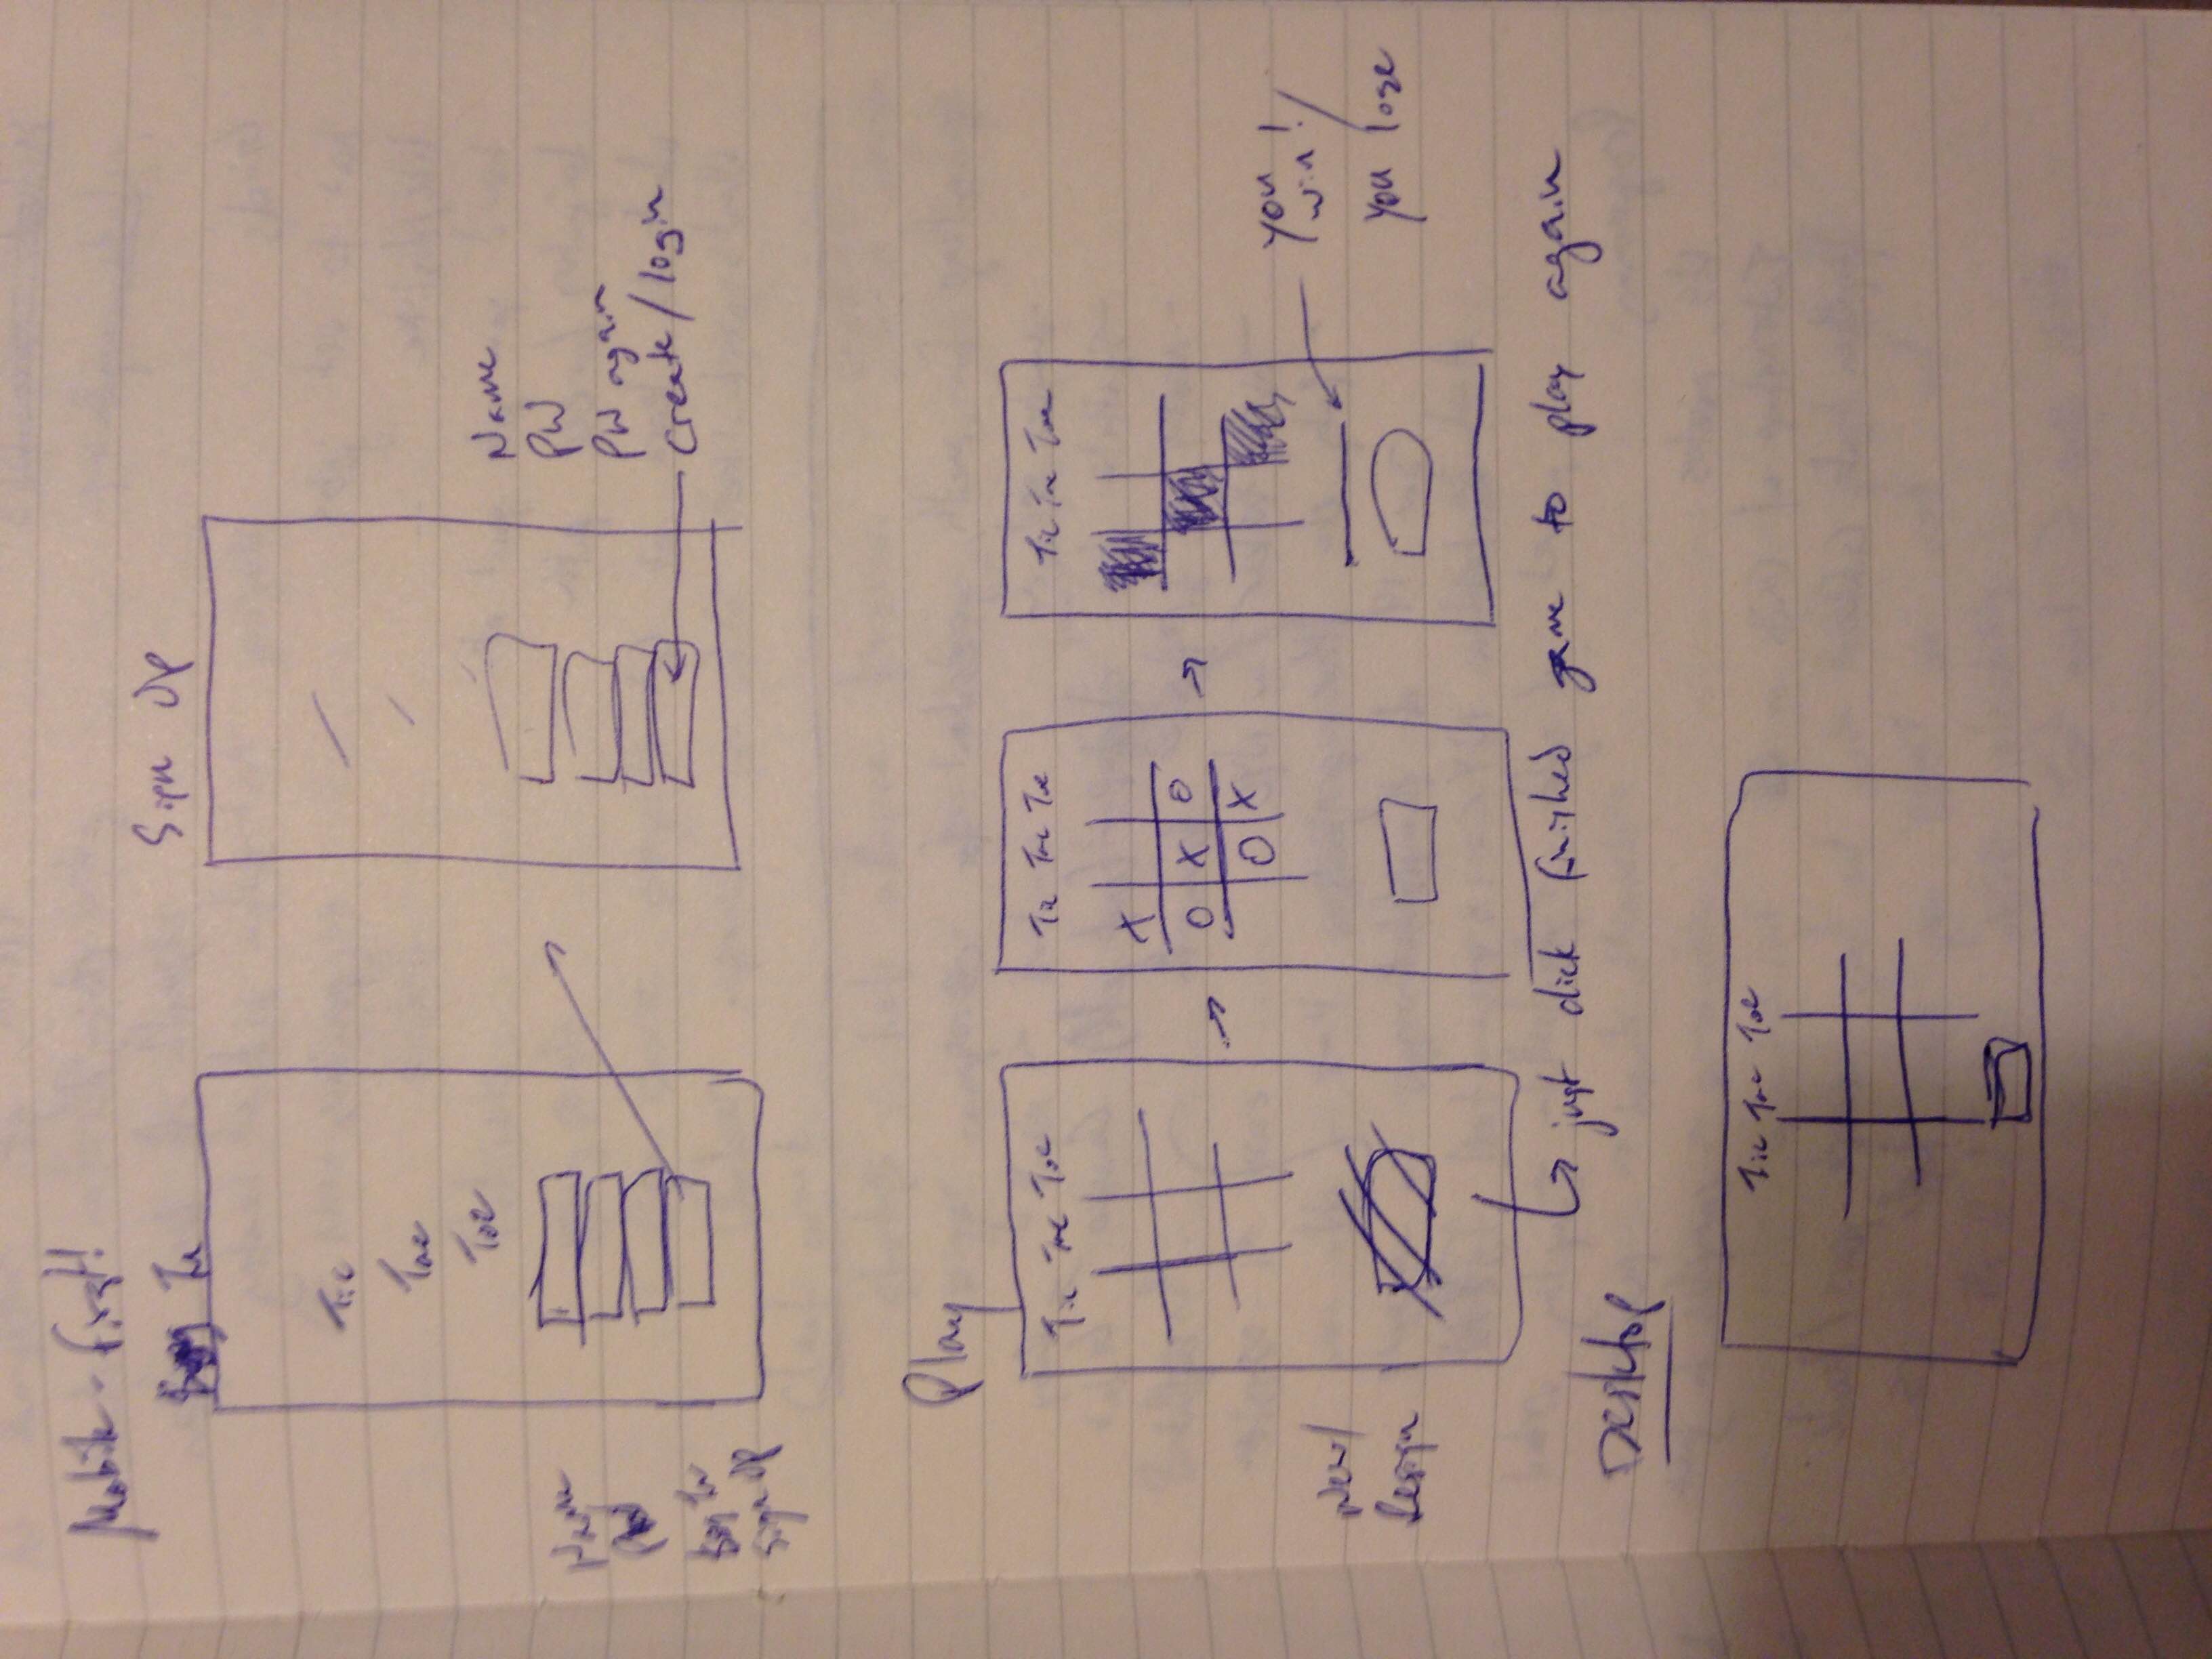 Mobile-first!
In
Sign Up
Tic
Tac
Toe
Name
PW
In
Sign Up
Name
PW
PW again
create/login
Play
Tic Tac Toe
Tic Tac Toe
Tic Tac Toe
X
O X O
O X
New/
Resign
you
win!/
you lose
just click finished game to play again
Desktop
Tic Tac Toe